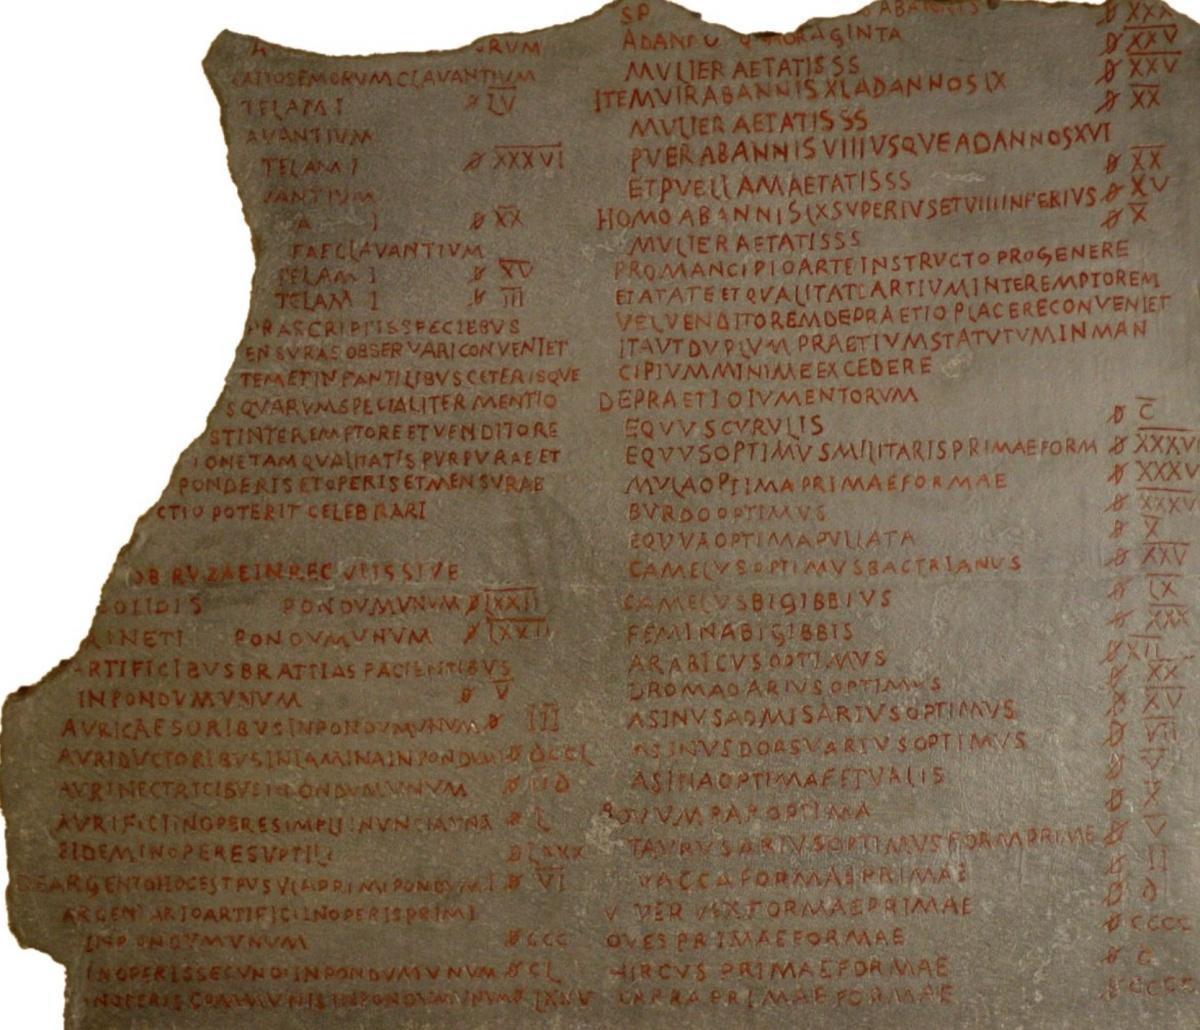 RUM
CLAVANTIVM
TELAM I ꟷ L̅V̅
AVANTIVM
TELAM I X̅X̅X̅V̅I̅
VANTIVM
A I X̅X̅
FAECLAVANTIVM
TELAM I X̅V̅
TELAM I I̅I̅I̅
PRASCRIPTIS SPECIEBVS
ENSVRAS OBSERVARI CONVENIET
TEM ET INFANTILIBVS CETERISQVE
S QVARVM SPECIALITER MENTIO
ST INTER EMPTORE ET VENDITORE
IONE TAM QVALITATIS PVRPVRAE ET
PONDERIS ET OPERIS ET MENSVRAE
CTIO POTERIT CELEBRARI
OBRVZAE IN REGVLIS SIVE
SOLIDIS PONDVM VNVM L̅X̅X̅I̅I̅
NETI PONDVM VNVM L̅X̅X̅I̅I̅
ARTIFICIBVS BRATTIAS FACIENTIBVS
IN PONDVM VNVM V̅
AVRI CAESORIBVS IN PONDVM VNVM I̅I̅I̅
AVRI DVCTORIBVS IN LAMINA IN PONDVM DCCL
AVRI NECTRICIBVS PONDVM VNVM
AVRIFICI IN OPERE SIMPLI IN VNCIAM L
EIDEM IN OPERE SVPTILI
DE ARGENTO HOC EST PVSVLA PRIMI PONDVM I V̅I̅
ARGENTARIO ARTIFICI IN OPERIS PRIMI
IN PONDVM VNVM CCC
IN OPERIS SECVNDI IN PONDVM VNVM CL
IN OPERIS COMMVNIS IN PONDVM VNVM LXXV
SP
X̅X̅X̅
AD AN QVADRAGINTA X̅X̅V̅
MVLIER AETATIS SS X̅X̅V̅
ITEM VIR AB ANNIS XL AD ANNOS LX X̅X̅
MVLIER AETATIS SS
PVER AB ANNIS VIII VSQVE AD ANNOS XVI
ET PVELLAM AETATIS SS X̅X̅
HOMO AB ANNIS LX SVPERIVS ET VIII INFERIVS X̅V̅
MVLIER AETATIS SS X̅
PRO MANCIPIO ARTE INSTRVCTO PRO GENERE
ET ATATE ET QVALITATE ARTIVM INTER EMPTOREM
VEL VENDITOREM DE PRAETIO PLACERE CONVENIET
ITA VT DVPLVM PRAETIVM STATVTVM IN MAN
CIPIVM MINIME EXCEDERE
DE PRAETIO IVMENTORVM
EQVVS CVRVLIS C̅
EQVVS OPTIMVS MILITARIS PRIMAE FORM X̅X̅X̅V̅
MVLA OPTIMA PRIMAE FORMAE X̅X̅X̅V̅
BVRDO OPTIMVS X̅X̅X̅V̅
EQVVA OPTIMA PVLLATA X̅
CAMELVS OPTIMVS BACTRIANVS X̅X̅V̅
CAMELVS BIGIBBIVS L̅X̅
FEMINA BIGIBBIS X̅X̅X̅
ARABICVS OPTIMVS X̅I̅I̅
DROMADARIVS OPTIMVS X̅X̅
ASINVS ADMISARIVS OPTIMVS X̅V̅
ASINVS DORSVARIVS OPTIMVS V̅I̅I̅
ASINA OPTIMA FETVALIS V̅
BOVVM PAR OPTIMA X̅
TAVRVS ARIVS OPTIMVS FORM PRIME V̅
VACCA FORMAE PRIMAE I̅I̅
VERVEX FORMAE PRIMAE D
OVES PRIMAE FORMAE CCCC
HIRCVS PRIMAE FORMAE
CAPRA PRIMAE FORMAE CCCC